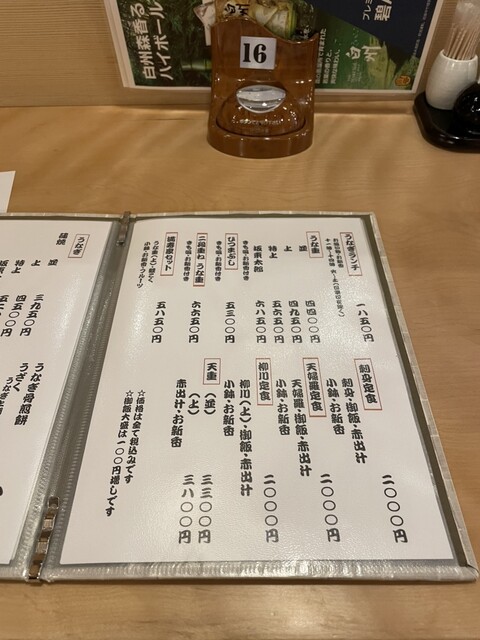 白州森香る
ハイボール
白州
16
プレミ
碧A
うなぎランチ
一八五〇円
うな重
並 四四〇〇円
上 四九五〇円
特上 五六五〇円
坂東太郎 六八五〇円
きも吸・お新香付き
ひつまぶし
きも吸・お新香付き
五三〇〇円
二段重ねうな重
きも吸・お新香付き
六六五〇円
満喜泉セット
うな重(上)・肝さく
小鉢・お新香・フルーツ
五八五〇円
刺身定食
刺身・御飯・赤出汁
小鉢・お新香
二〇〇〇円
天婦羅定食
天婦羅・御飯・赤出汁
小鉢・お新香
二〇〇〇円
柳川定食
柳川(上)・御飯・赤出汁
小鉢・お新香
二〇〇〇円
天重
(並) 三三〇〇円
(上) 三八〇〇円
赤出汁・お新香
☆価格は全て税込みです
☆御飯大盛は一〇〇円増しです
うなぎ
蒲焼
並 三九五〇円
上 四五〇〇円
特上
うなぎ骨煎餅
うざく